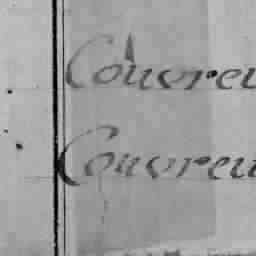 Couvreu
Couvreu